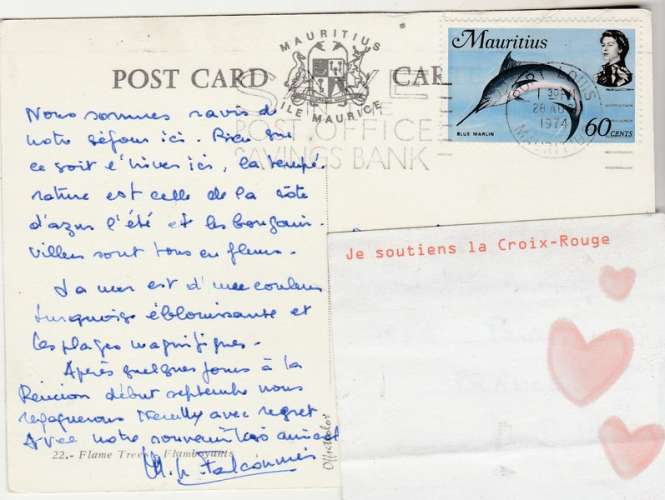 POST CARD
CAR
MAURITIUS
ILE MAURICE
SAVE
POST OFFICE
SAVINGS BANK
Mauritius
BLUE MARLIN
60 CENTS
PORT LOUIS
28 AU
1974
MAURITIUS
Nous sommes ravis de
notre séjour ici. Bien que
ce soit l'hiver ici, la tempé
rature est celle de la côte
d'azur l'été et les bougain-
villers sont tous en fleurs.
La mer est d'une couleur
turquoise éblouissante et
les plages magnifiques.
Après quelques jours à la
Réunion début septembre nous
regagnerons Neuilly avec regret
Avec notre souvenir très amical
22.- Flame Trees - Flamboyants
Je soutiens la Croix-Rouge